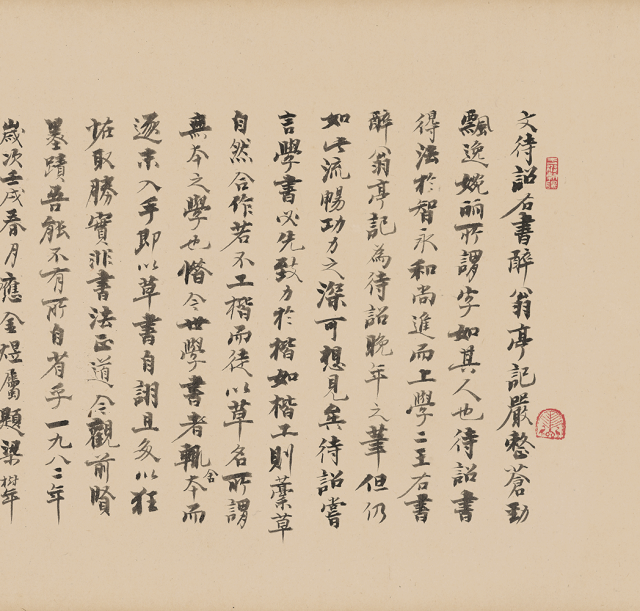 文待詔右書醉翁亭記嚴整蒼勁
飄逸婉丽所謂字如其人也待詔書
得法於智永和尚進而上學二王右書
醉翁亭記為待詔晚年之筆但仍
如此流暢功力之深可想見矣待詔嘗
言學書必先致力於楷如楷工則藁草
自然合作若不工楷而徒以草名所謂
無本之學也惜今世學書者輒舍本而
逐末入手即以草書自詡且多以狂
怪取勝實非書法正道今觀前賢
墨蹟吾能不有所自省乎一九八二年
歲次壬戌春月應金煜屬題梁樹年